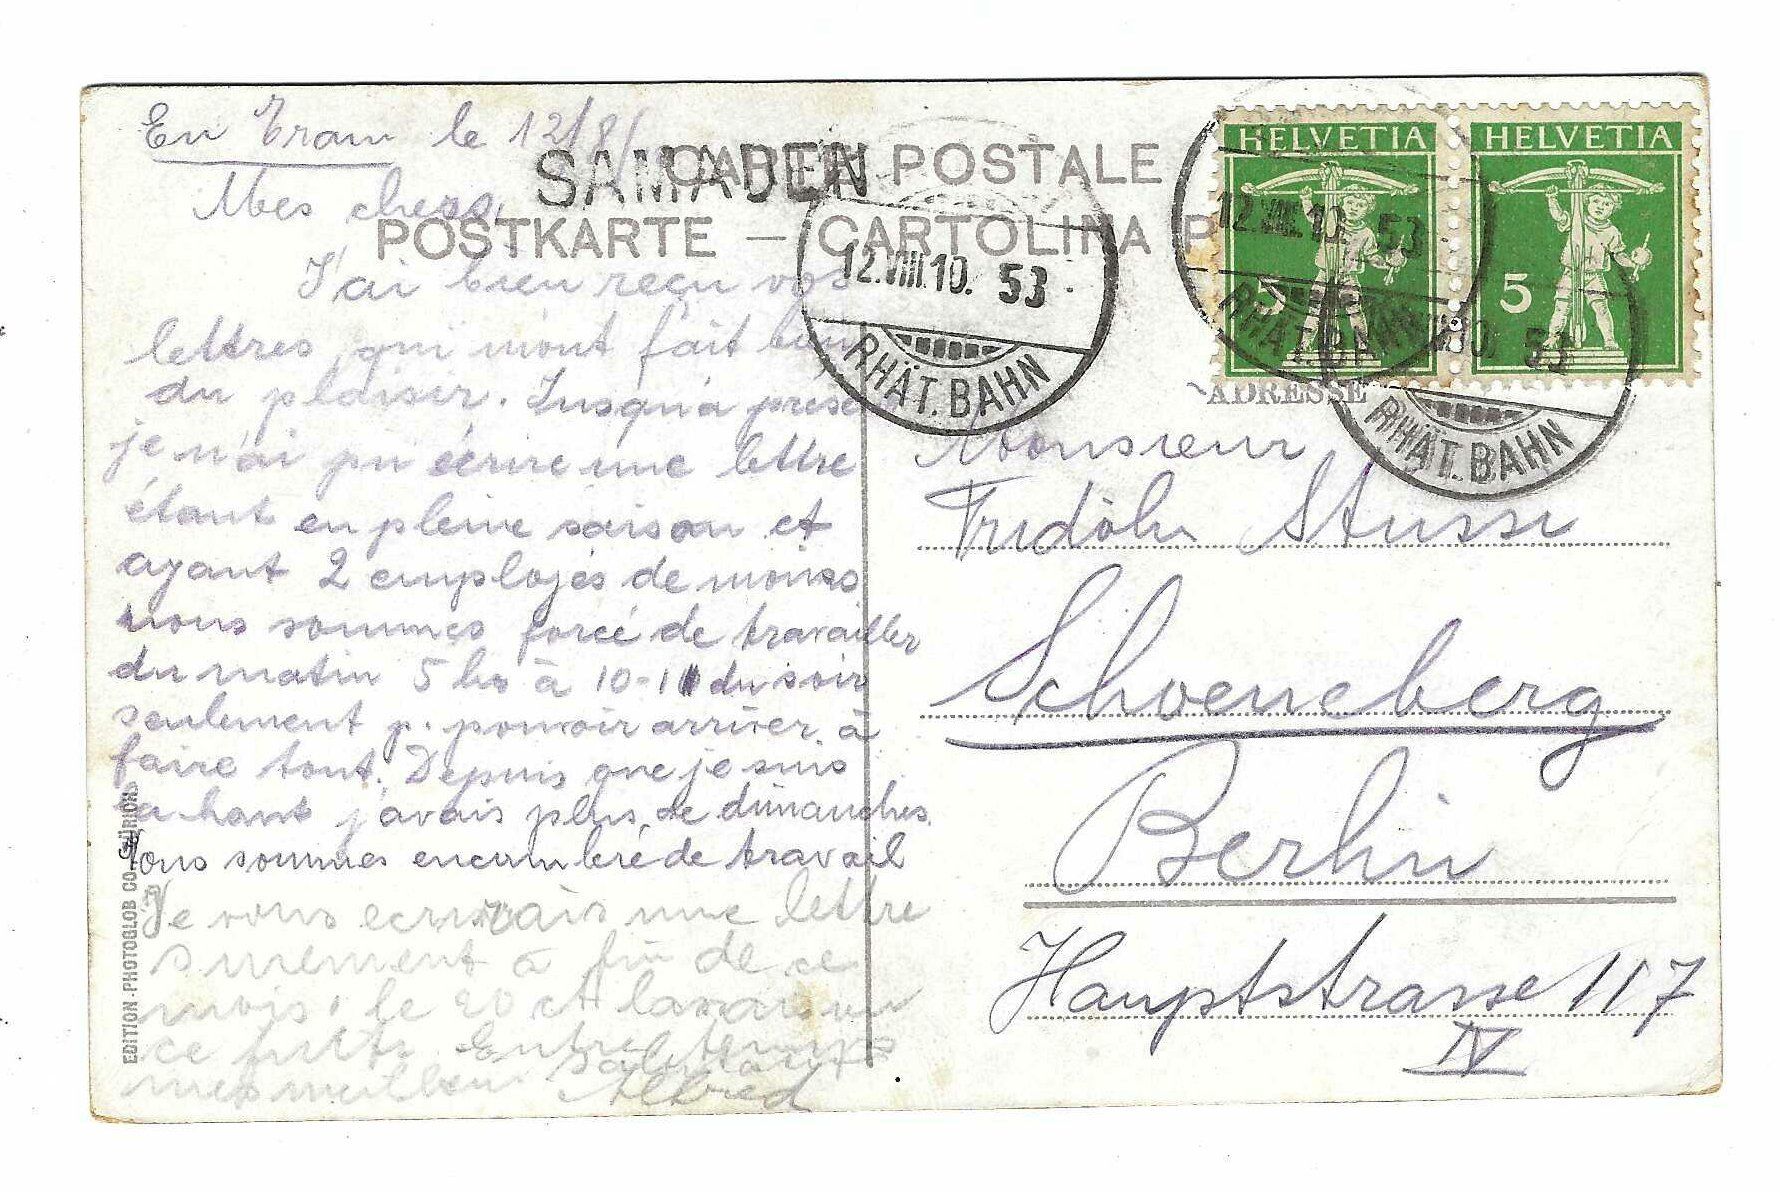 En Tram le 12/8/
SAMADEN
CARTE POSTALE
POSTKARTE — CARTOLINA P
Mes chers,
J'ai bien reçu vos
lettres, qui m'ont fait bien
du plaisir. Jusqu'à prése
je n'ai pu écrire une lettre
étant en pleine saison et
ayant 2 employés de moins
nous sommes forcé de travailler
du matin 5 hs à 10-11 du soir
seulement p. pouvoir arriver à
faire tout. Depuis que je suis
la haut j'avais plus de dimanches.
sommes encombré de travail
Je vous ecrivais une lettre
surement à fin de ce
mois, le 20 ct
ce Entre temps
mes meilleurs Salutations
Alfred
EDITION-PHOTOGLOB CO. ZÜRICH
12.VIII.10. 53
RHÄT. BAHN
HELVETIA
5
12.VIII.10. 53
RHÄT. BAHN
HELVETIA
5
53
RHÄT. BAHN
ADRESSE
Monsieur
Fridolin Stussi
Schoeneberg
Berlin
Hauptstrasse 117
IV